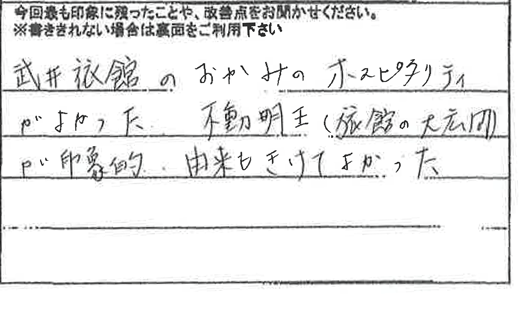 今回最も印象に残ったことや、改善点をお聞かせください。
※書ききれない場合は裏面をご利用下さい
武井旅館のおかみのホスピタリティ
がよかった. 不動明王(旅館の大広間)
が印象的. 由来もきけてよかった